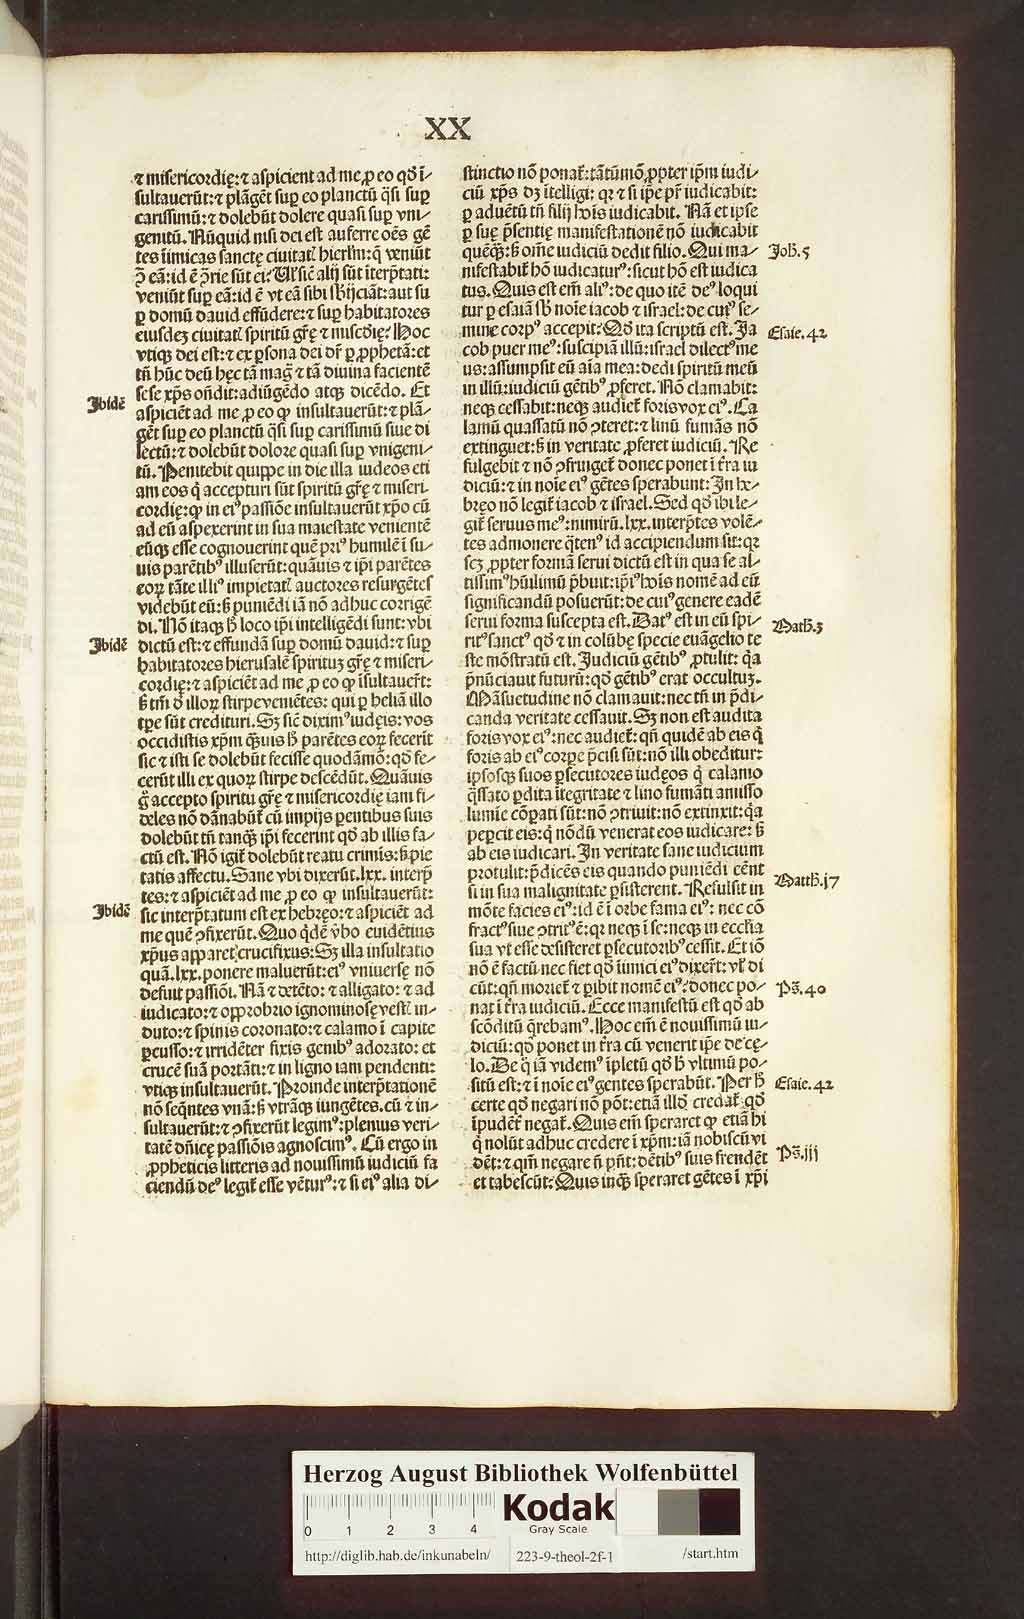 XX
⁊ misericordię: ⁊ aspicient ad me ꝓ eo qď ī-
sultauerūt: ⁊ plāgēt suꝑ eo planctū q̄si suꝑ
carissimū: ⁊ dolebūt dolere quasi suꝑ vni-
genitū. Nūquid nisi dei est auferre oēs gē
tes īimicas sanctę ciuitatꝭ hierlm̄: q̄ veniūt
ꝯ̄ eā: id ē ꝯ̄rie sūt ei? Vꝉ siē alij sūt iterp̄tati:
veniūt suꝑ eā: id ē vt eā sibi sb̄ijciāt: aut su
ꝑ domū dauid effūdere: ⁊ suꝑ habitatores
eiusdeꝫ ciuitatꝭ spiritū gr̄ę ⁊ mīscďię? Hoc
vtiqꝫ dei est: ⁊ ex ꝑsona dei dr̄ ꝑ ꝓphetā: et
tn̄ hūc deū hęc tā mag̅ ⁊ tā diuina facientē
sese xp̄s on̄dit: adiūgēdo atqꝫ dicēdo. Et
Ibidē
aspiciēt ad me ꝓ eo ꝙ insultauerūt: ⁊ plā-
gēt suꝑ eo planctū q̄si suꝑ carissimū siue di
lectū: ⁊ dolebūt dolore quasi suꝑ vnigeni-
tū. Penitebit quippe in die illa iudeos eti
am eos q̇ accepturi sūt spiritū gr̄ę ⁊ miseri-
cordię: ꝙ in eiꝰ passiōe insultauerūt xp̄o cū
ad eū aspexerint in sua maiestate venientē
eūqꝫ esse cognouerint quē priꝰ humilē ī su-
uis parētibꝰ illuserūt: quāuis ⁊ ip̄i parētes
eoꝝ tāte illiꝰ impietatꝭ auctores resurgētes
videbūt eū: sꝫ puniēdi iā nō adhuc corrigē
di. Nō itaqꝫ h̄ loco ip̄i intelligēdi sunt: vbi
Ibidē
dictū est: ⁊ effundā suꝑ domū dauid: ⁊ suꝑ
habitatores hierusalē spirituꝫ gr̄ę ⁊ miseri-
cordię: ⁊ aspiciēt ad me ꝓ eo ꝙ īsultauer̄t:
sꝫ tm̄ ď illoꝝ stirpe veniētes: qui ꝑ heliā illo
tꝑe sūt credituri. Sꝫ siē diximꝰ iudęis: vos
occidistis xp̄m q̄uis h̄ parētes eoꝝ fecerīt
sic ⁊ isti se dolebūt fecisse quodāmō: qď fe-
cerūt illi ex quoꝝ stirpe descēdūt. Quāuis
g̊ accepto spiritu gr̄ę ⁊ misericordię iam fi-
deles nō dānabūt̄ cū impijs ꝑentibus suis
dolebūt tn̄ tanq̄ꝫ ip̄i fecerint qď ab illis fa-
ctū est. Nō igit̄ dolebūt reatu crimis: sꝫ pie
tatis affectu. Sane vbi dixerūt .lxx. interp̄
tes: ⁊ aspiciēt ad me ꝓ eo ꝙ insultauerūt:
Ibidē
sic interp̄tatum est ex hebręo: ⁊ aspiciēt ad
me quē ꝯfixerūt. Quo q̇dē ꝟbo euidētius
xp̄us apparet crucifixus: Sꝫ illa insultatio
quā .lxx. ponere maluerūt: eiꝰ vniuersę nō
defuit passiōi. Nā ⁊ detēto: ⁊ alligato: ⁊ ad
iudicato: ⁊ opprobrio ignominosę vestꝭ in-
duto: ⁊ spinis coronato: ⁊ calamo ī capite
ꝑcusso: ⁊ irridēter fixis genibꝰ adorato: et
crucē suā portāti: ⁊ in ligno iam pendenti:
vtiqꝫ insultauerūt. Proinde interp̄tationē
nō seq̄ntes vnā: sꝫ vtrāqꝫ iungētes. cū ⁊ in-
sultauerūt: ⁊ ꝯfixerūt legimꝰ: plenius veri-
tatē dn̄icę passiōis agnoscimꝰ. Cū ergo in
ꝓpheticis litteris ad nouissimū iudiciū fa
ciendū deꝰ legit̄ esse vētur9: ⁊ si eiꝰ alia di-
stinctio nō ponat̄: tātūmō ꝓpter ip̄m iudi-
ciū xp̄s dꝫ ītelligi: qꝛ ⁊ si ip̄e pr̄ iudicabit:
ꝑ aduētū tn̄ filij hoīs iudicabit. Nā et ipse
ꝑ suę p̄sentię manifestationē nō iudicabit
quēq̄ꝫ: sꝫ om̄e iudiciū dedit filio. Qui ma-
Joh̄. 5
nifestabit̄ hō iudicaturꝰ: sicut hō est iudica
tus. Quis est em̄ aliꝰ: de quo itē deꝰ loqui
tur ꝑ esaiā sb̄ noīe iacob ⁊ israel: de cuiꝰ se-
mine corpꝰ accepit? Qď ita scriptū est. Ja
Esaie. 42
cob puer meꝰ: suscipiā illū: israel dilectꝰ me
us: assumpsit eū aīa mea: dedi spiritū meū
in illū: iudiciū gētibꝰ ꝓferet. Nō clamabit:
neqꝫ cessabit: neqꝫ audiet̄ foris vox eiꝰ. Ca
lamū quassatū nō ꝯteret: ⁊ linū fumās nō
extinguet: sꝫ in veritate ꝓferet iudiciū. Re
fulgebit ⁊ nō ꝯfringet̄ donec ponet ī t̄ra iu
diciū: ⁊ in noīe eiꝰ gētes sperabunt: In he-
bręo nō legit̄ iacob ⁊ israel. Sed qď ibi le-
git̄ seruus meꝰ: nimirū .lxx. interp̄tes volē-
tes admonere q̄tenꝰ id accipiendum sit: qꝛ
scꝫ ꝓpter formā serui dictū est in qua se al-
tissimꝰ hūilimū p̄buit: ip̄iꝰ hoīs nomē ad eū
significandū posuerūt: de cuiꝰ genere eadē
serui forma suscepta est. Datꝰ est in eū spi-
Math̄. 3
ritꝰ sanctꝰ qď ⁊ in colūbę specie euāgelio te
ste mōstratū est. Judiciū gētibꝰ ꝓtulit: q̇a
p̄nūciauit futurū: qď gētibꝰ erat occultuꝫ.
Māsuetudine nō clamauit: nec tn̄ in p̄di-
canda veritate cessauit. Sꝫ non est audita
foris vox eiꝰ: nec audiet̄: qn̄ quidē ab eis q̇
foris ab eiꝰ corpꝑe p̄cisi sūt: nō illi obeditur:
ipsosqꝫ suos ꝑsecutores iudęos q̇ calamo
q̄ssato ꝑdita ītegritate ⁊ lino fumāti amisso
lumīe cōpati sūt: nō ꝯtriuit: nō extinxit: q̇a
peꝑcit eis: q̇ nōdū venerat eos iudicare: sꝫ
ab eis iudicari. In veritate sane iudicium
protulit: p̄dicēs eis quando puniēdi cēnt
Matth̄. 17
si in sua malignitate ꝑsisterent. Resulsit in
mōte facies eiꝰ: id ē ī orbe fama eiꝰ: nec cō
fractꝰ siue ꝯtritꝰ ē: qꝛ neqꝫ ī se: neqꝫ in ecclīa
sua vt esse desisteret ꝑsecutoribꝰ cessit. Et iō
nō ē factū nec fiet qď īimici eiꝰ dixer̄t: vꝉ di
cūt: qn̄ moriet̄ ⁊ ꝑibit nomē eiꝰ? donec po-
Ps̄. 40
nat ī t̄ra iudiciū. Ecce manifestū est qď ab
scōditū q̄rebamꝰ. Hoc em̄ ē nouissimū iu-
diciū: qď ponet in t̄ra cū venerit ip̄e de cę-
lo. De q̊ iā videmꝰ īpletū qď h̄ vltimū po-
situ est: ⁊ ī noīe eiꝰ gentes sperabūt. Per h̄
Esaie. 42
certe qď negari nō pōt: etiā illď credat̄ qď
īpudēt̄ negat̄. Quis em̄ speraret ꝙ etiā hi
q̇ nolūt adhuc credere ī xp̄m: iā nobiscū vi
dēt: ⁊ qm̄ negare n̄ pn̄t: dētibꝰ suis frendēt
Ps̄. iij
et tabescūt: Quis inq̄ꝫ speraret gētes ī xp̄i
Herzog August Bibliothek Wolfenbüttel
0 1 2 3 4
Kodak
Gray Scale
http://diglib.hab.de/inkunabeln/ 223-9-theol-2f-1 /start.htm